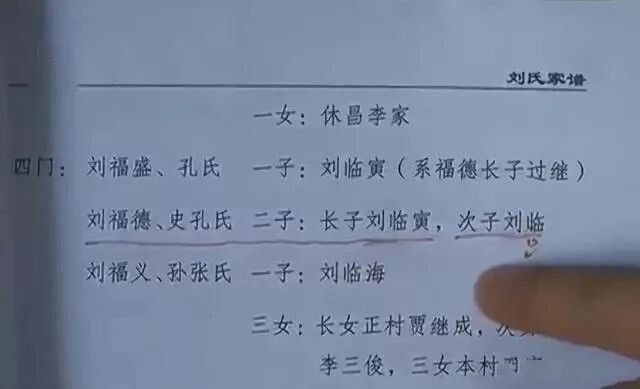 刘氏家谱
一女：休昌李家
四门：刘福盛、孔氏 一子：刘临寅（系福德长子过继）
刘福德、史孔氏 二子：长子刘临寅，次子刘临
刘福义、孙张氏 一子：刘临海
三女：长女正村贾继成，次女
李三俊，三女本村